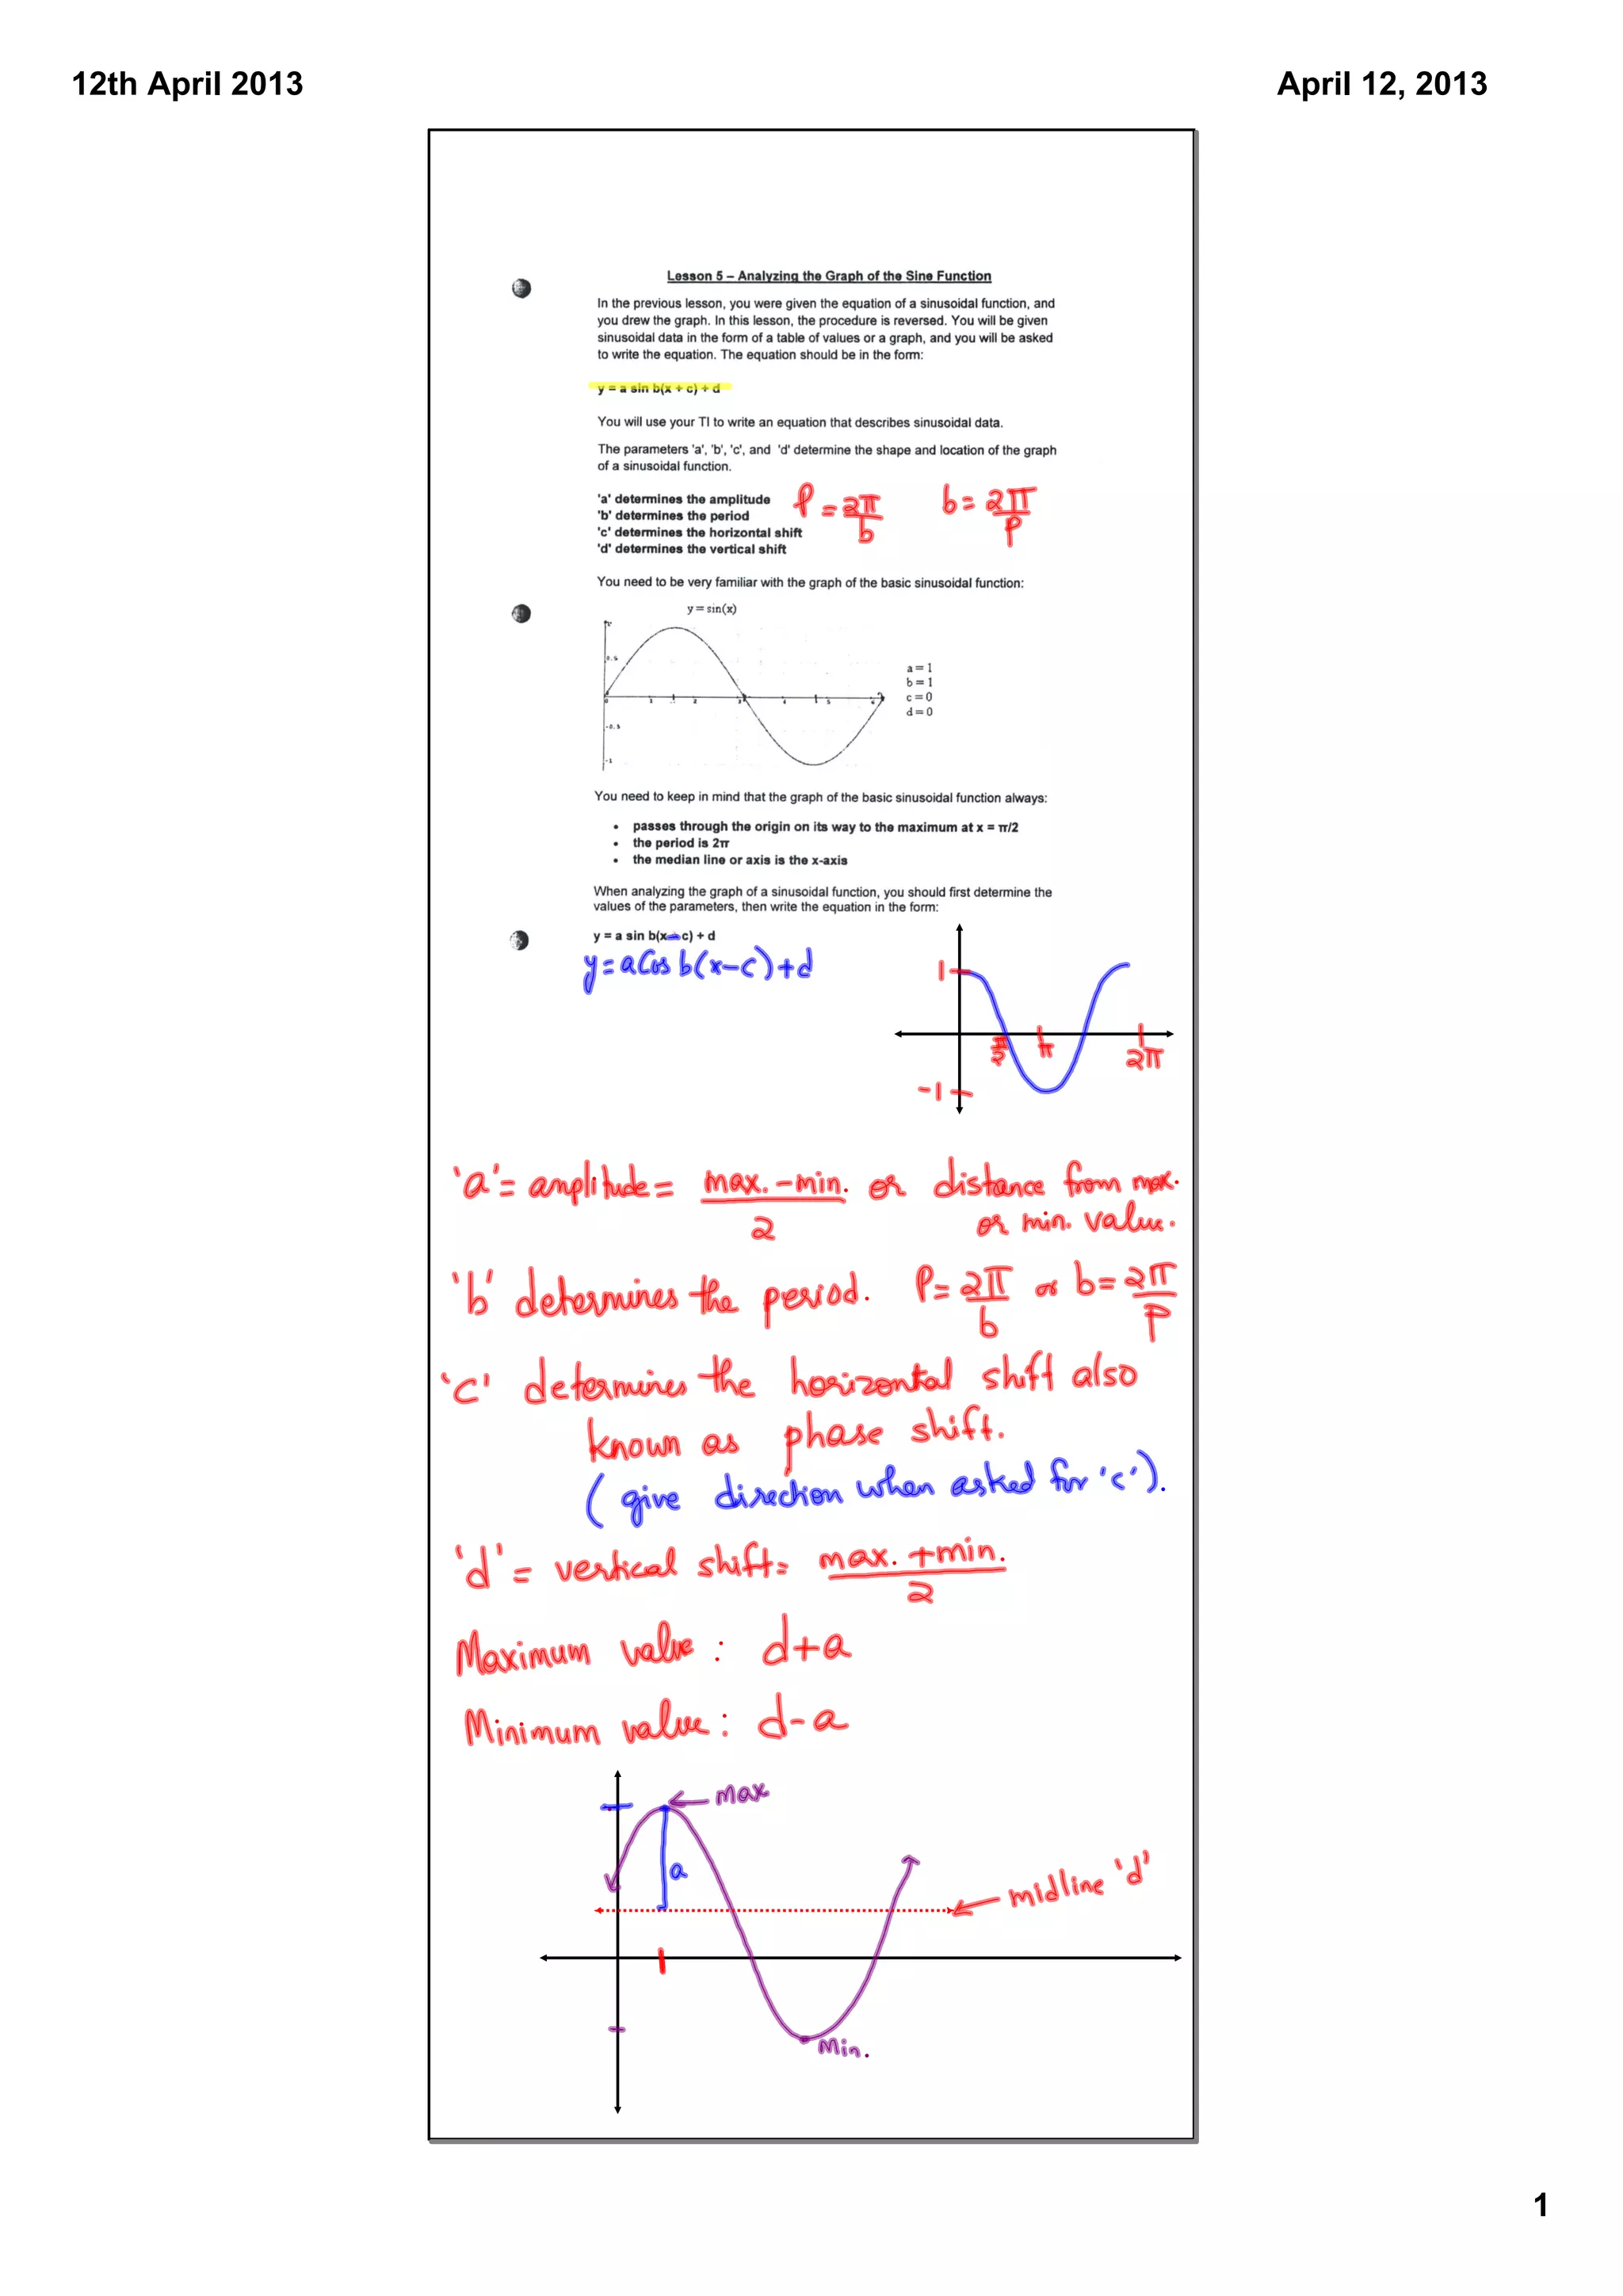 12th April 2013
April 12, 2013
Lesson 5 – Analyzing the Graph of the Sine Function
In the previous lesson, you were given the equation of a sinusoidal function, and
you drew the graph. In this lesson, the procedure is reversed. You will be given
sinusoidal data in the form of a table of values or a graph, and you will be asked
to write the equation. The equation should be in the form:
y = a sin b(x + c) + d
You will use your TI to write an equation that describes sinusoidal data.
The parameters 'a', 'b', 'c', and 'd' determine the shape and location of the graph
of a sinusoidal function.
'a' determines the amplitude
'b' determines the period
'c' determines the horizontal shift
'd' determines the vertical shift
P = 2π/b b = 2π/P
You need to be very familiar with the graph of the basic sinusoidal function:
y = sin(x)
0.5
0 1 2 3 4 5 6
-0.5
-1
a = 1
b = 1
c = 0
d = 0
You need to keep in mind that the graph of the basic sinusoidal function always:
• passes through the origin on its way to the maximum at x = π/2
• the period is 2π
• the median line or axis is the x-axis
When analyzing the graph of a sinusoidal function, you should first determine the
values of the parameters, then write the equation in the form:
y = a sin b(x - c) + d
y = a Cos b(x - c) + d
1
π/2 π 2π
-1
'a' = amplitude = max. - min./2 or distance from max.
or min. value.
'b' determines the period. P = 2π/b or b = 2π/P
'c' determines the horizontal shift also
known as phase shift.
(give direction when asked for 'c').
'd' = vertical shift = max. + min./2
Maximum value : d + a
Minimum value : d - a
max
a
midline 'd'
Min.
1